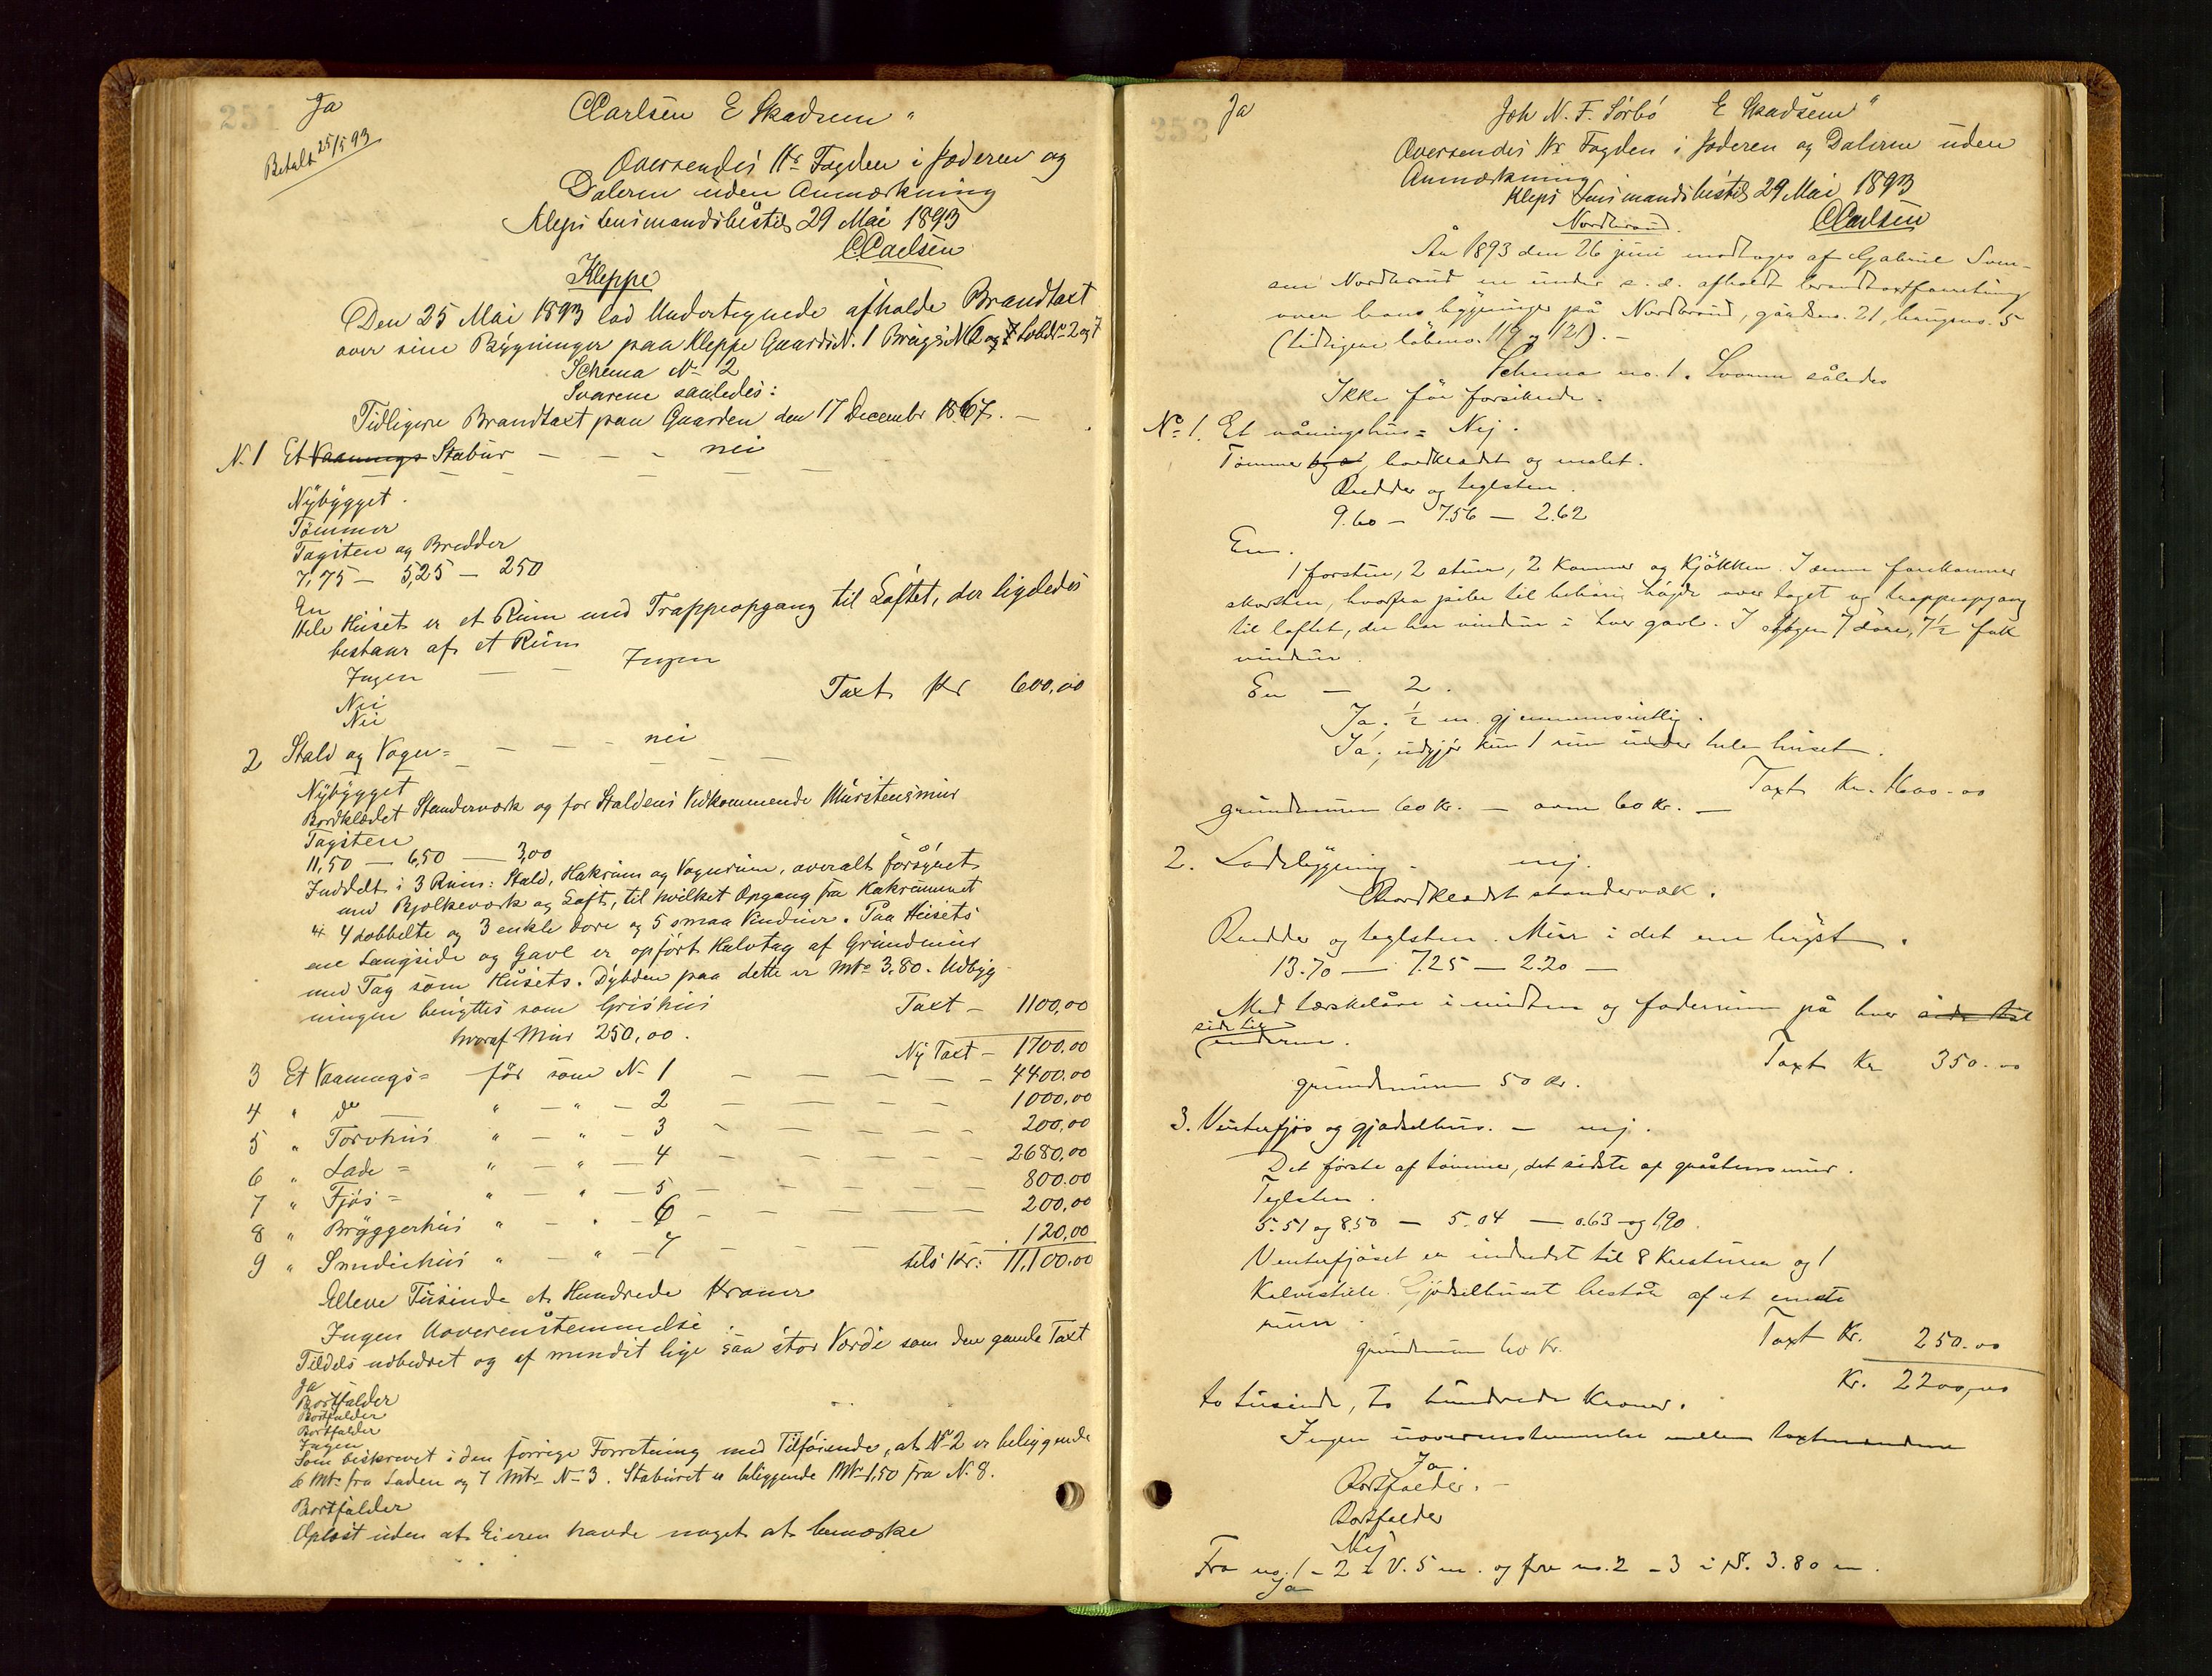 251
Ja
Betalt 25/5 93
CCarlsen E Skadsem "
Oversendes Hr Fogden i Jæderen og
Dalerne uden Anmærkning
Kleps Lensmandsbestil 29 Mai 1893
CCarlsen
Kleppe
Den 25 Mai 1893 lod Undertegnede afholde Brandtaxt
over sine Bygninger paa Kleppe Gaards N. 1 Brugs N 6 og 7 Løbe N 2 og 7
Schema N 2
Svarene saaledes:
Tidligere Brandtaxt paa Gaarden den 17 Decembr 1867. —
N. 1 Et Vaanings Stabur — — - nei
Nybygget.
Tømmer
Tagsten og Bredder
7,75 — 5,25 — 250
En
Hele Huset er et Rum med Trappeopgang til Loftet, der ligeledes
bestaar af et Rum
Ingen — — Ingen
Nei
Nei
Taxt Kr 600,00
2 Stald og Vogn= — — - nei
Nybygget
Bordklædet Standerværk og for Staldens Vedkommende Murstensmur
Tagsten
11,50 — 6,50 — 3,00
Inddelt i 3 Rum: Stald, Hakrum og Vognrum, overalt forsynet
med Bjelkeværk og Loft, til hvilket Opgang fra Hakrummet
4 dobbelte og 3 enkle Døre og 5 smaa Vinduer. Paa Husets
ene Langside og Gavl er opført Halvtag af Grundmur
med Tag som Husets. Dybden paa dette er Mtr 3,80. Udbyg
ningen benyttes som Grishus
Taxt — 1100,00
hvoraf Mur 250,00.
Ny Taxt — 1700.00
3 Et Vaanings= før som N. 1 — — — — — 4400.00
4 " do — " — " — 2 — — — — 1000,00
5 " Torvhus " — " — 3 — — — — 200,00
6 " Lade = " — " — 4 — — — — 2680,00
7 " Fjøs = " — " — 5 — — — — 800.00
8 " Bryggerhus " — " — 6 — — — — 200,00
9 " Smedjehus " — " — 7 — — — — 120,00
tils Kr: 11,100.00
Elleve Tusinde et Hundrede Kroner
Ingen Uoverenstemmelse
Tildels udbedret og af mindst lige saa stor Værdi som den gamle Taxt
Ja
Bortfalder
Bortfalder
Bortfalder
Ingen
Som beskrevet i den forrige Forretning med Tilføiende, at N 2 er beliggende
6 Mtr fra Laden og 7 Mtr N 3. Staburet er beliggende Mtr 1,50 fra N. 8.
Bortfalder
Oplæst uden at Eieren havde noget at bemærke
252
Ja
Joh N. F. Sørbø E Skadsem "
Oversendes Hr Fogden i Jæderen og Dalerne uden
Anmærkning
Kleps Lensmandsbestil 29 Mai 1893
CCarlsen
Nordbraud.
År 1893 den 26 juni modtoges af Gabriel Sven-
sen Nordbraud en under s. d. afholdt brandtaxtforretning
over hans bygninger på Nordbraud, gårdsno. 21, brugsno. 5
(tidligere løbeno. 119 og 121). —
Schema no. 1. Svarene således
Ikke før forsikrede.
No 1. Et våningshus = Nej.
Tømmer bordklædt og malet.
Bredder og teglsten.
9.60 — 7.56 — 2.62
En.
1 forstue, 2 stuer, 2 kammer og kjøkken. I denne forekommer
skorsten, hvorfra piber til behørig højde over taget og trappeopgang
til loftet, der har vindue i hver gavl. I bygningen 7 døre, 7½ fak
vinduer.
En — 2.
Ja. ½ m. gjennemsnitlig.
Ja, udgjør kun 1 rum under hele huset.
Taxt Kr. 1600.00
grundmuren 60 kr. — ovne 60 kr. —
2. Ladebygning. nej.
Bordklædt standerværk.
Bredder og teglsten. Mur i det ene hjørnet.
13.70 — 7.25 — 2.20 —
Med tærskelåve i midten og foderrum på hver side til
side til
enderne.
Taxt Kr 350.00
grundmuren 50 kr.
3. Vinterfjøs og gjødselhus. — nej.
Det første af tømmer, det sidste af gråstensmur.
Teglsten.
5.51 og 8.50 — 5.04 — 0.63 og 1.90.
Vinterfjøset er indredet til 8 kreaturer og 1
kalvestille. Gjødselhuset består af et eneste
rum.
Taxt Kr. 250.00
grundmuren 60 kr.
Kr. 2200,00
to tusinde, to hundrede kroner.
Ingen uoverenstemmelse mellem taxtmændene
Ja.
Bortfalder. —
Bortfalder
Nej
Fra no. 1 - 2 i V. 5 m. og fra no. 2 - 3 i N. 3.80 m.
Ja